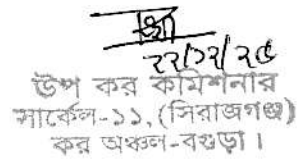 ২২/১২/২৫
উপ কর কমিশনার
সার্কেল-১১, (সিরাজগঞ্জ)
কর অঞ্চল-বগুড়া।